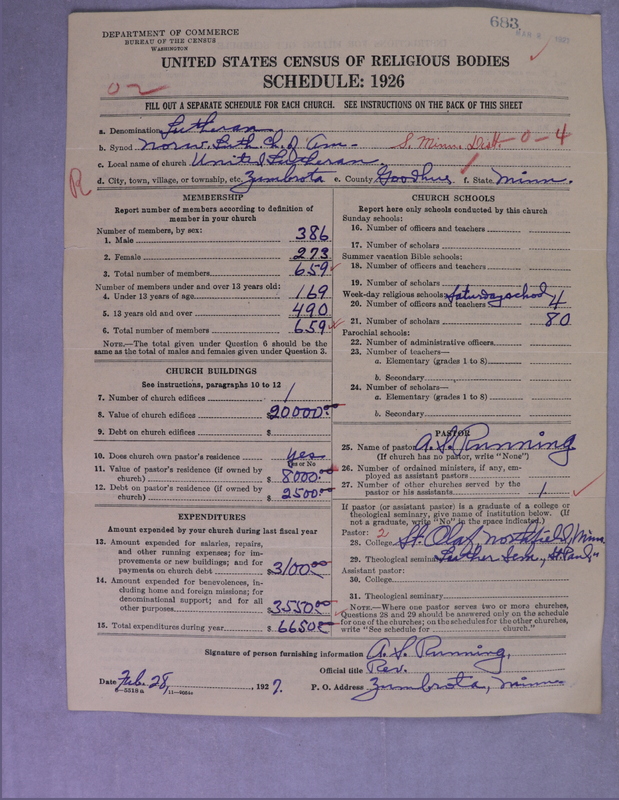 683
DEPARTMENT OF COMMERCE
BUREAU OF THE CENSUS
WASHINGTON
UNITED STATES CENSUS OF RELIGIOUS BODIES
SCHEDULE: 1926
FILL OUT A SEPARATE SCHEDULE FOR EACH CHURCH. SEE INSTRUCTIONS ON THE BACK OF THIS SHEET
a. Denomination Lutheran
b. Synod Norw. Luth. Ch. of Am. S. Minn. Dist. - 0 - 4
c. Local name of church United Lutheran
R d. City, town, village, or township, etc. Zumbrota e. County Goodhue f. State Minn.
MEMBERSHIP
Report number of members according to definition of
member in your church
Number of members, by sex:
1. Male 386
2. Female 273
3. Total number of members 659
Number of members under and over 13 years old:
4. Under 13 years of age 169
5. 13 years old and over 490
6. Total number of members 659
NOTE.—The total given under Question 6 should be the
same as the total of males and females given under Question 3.
CHURCH BUILDINGS
See instructions, paragraphs 10 to 12
7. Number of church edifices 1
8. Value of church edifices $20000.00
9. Debt on church edifices $
10. Does church own pastor's residence yes
Yes or No
11. Value of pastor's residence (if owned by
church) $ 8000.00
12. Debt on pastor's residence (if owned by
church) $ 2500.00
EXPENDITURES
Amount expended by your church during last fiscal year
13. Amount expended for salaries, repairs,
and other running expenses; for im-
provements or new buildings; and for
payments on church debt $3100.00
14. Amount expended for benevolences, in-
cluding home and foreign missions; for
denominational support; and for all
other purposes $3550.00
15. Total expenditures during year $ 6650.00
CHURCH SCHOOLS
Report here only schools conducted by this church
Sunday schools:
16. Number of officers and teachers
17. Number of scholars
Summer vacation Bible schools:
18. Number of officers and teachers
19. Number of scholars
Week-day religious schools: Saturday school
20. Number of officers and teachers 4
21. Number of scholars 80
Parochial schools:
22. Number of administrative officers
23. Number of teachers—
a. Elementary (grades 1 to 8)
b. Secondary
24. Number of scholars—
a. Elementary (grades 1 to 8)
b. Secondary
PASTOR
25. Name of pastor A. S. Running
(If church has no pastor, write "None")
26. Number of ordained ministers, if any, em-
ployed as assistant pastors
27. Number of other churches served by the
pastor or his assistants 1
If pastor (or assistant pastor) is a graduate of a college or
theological seminary, give name of institution below. (If
not a graduate, write "No" in the space indicated.)
Pastor: 2
28. College St. Olaf, Northfield, Minn
29. Theological seminary Luther Sem., St. Paul, "
Assistant pastor:
30. College
31. Theological seminary
NOTE.—Where one pastor serves two or more churches,
Questions 28 and 29 should be answered only on the schedule
for one of the churches; on the schedules for the other churches,
write "See schedule for church."
Signature of person furnishing information A. S. Running,
Official title Rev.
Date Feb. 28, 1927. P. O. Address Zumbrota, Minn